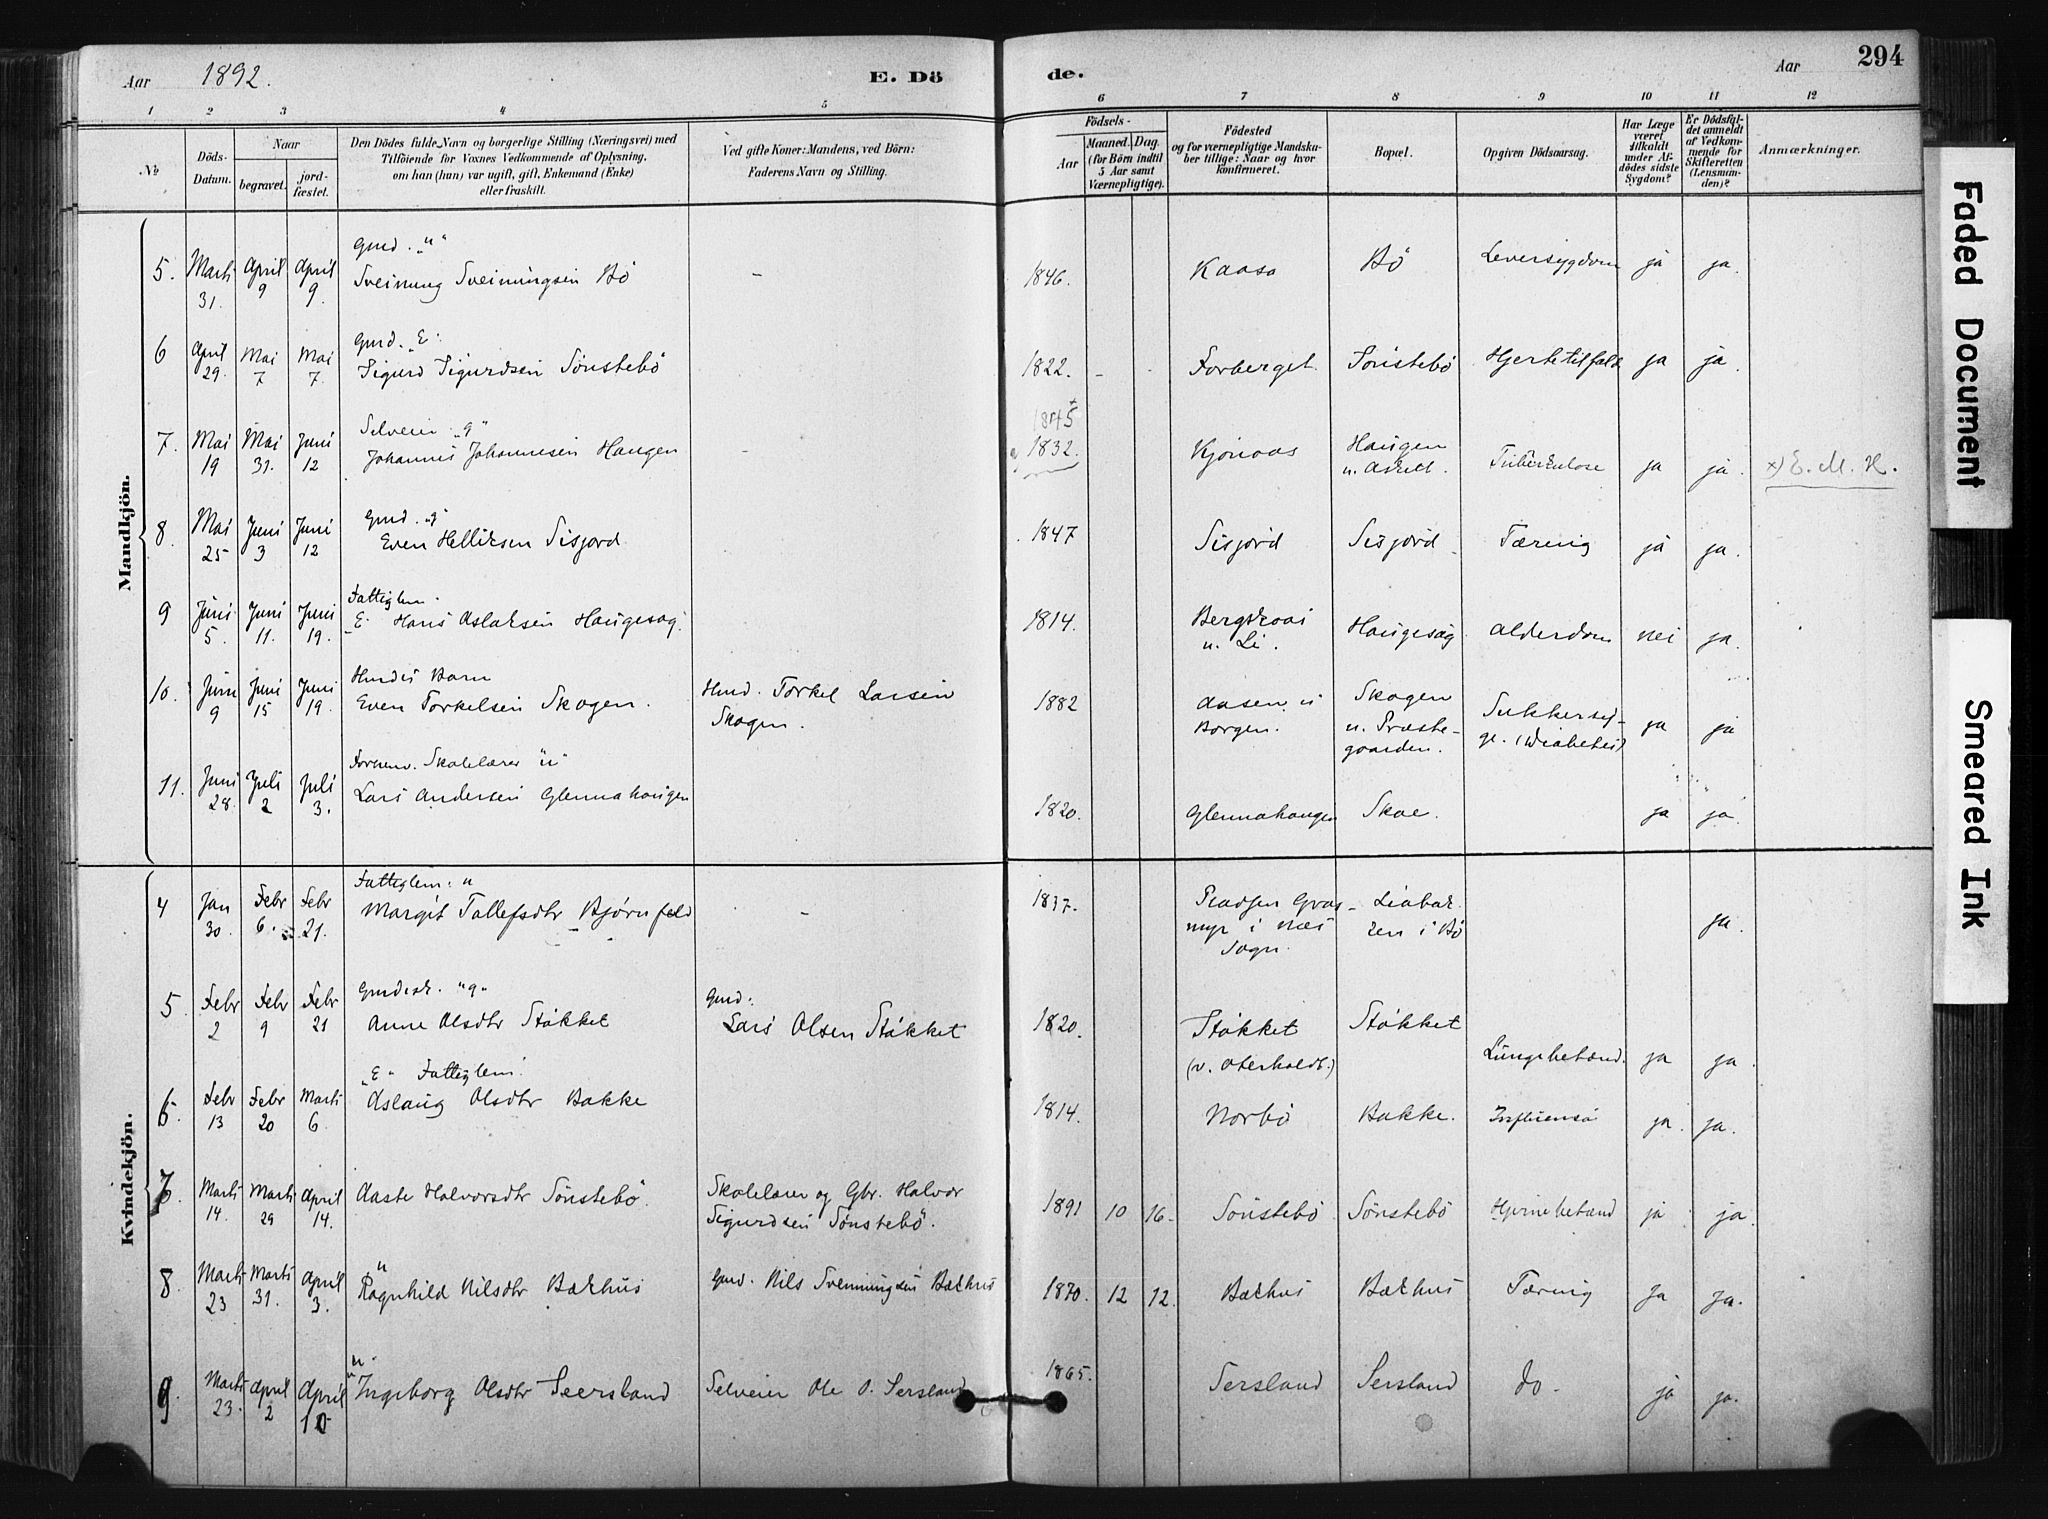 Aar 1892. E. Döde. Aar 294
1 2 3 4 5 6 7 8 9 10 11 12
№
Döds-Datum.
Naar
begravet.
jord-fæstet.
Den Dödes fulde Navn og borgerlige Stilling (Næringsvei) med
Tilföiende for Voxnes Vedkommende af Oplysning,
om han (hun) var ugift, gift, Enkemand (Enke)
eller fraskilt.
Ved gifte Koner: Mandens, ved Börn:
Faderens Navn og Stilling.
Födsels-
Aar
Maaned. Dag.
(for Börn indtil
5 Aar samt
Værnepligtige).
Födested
og for værnepligtige Mandska-
ber tillige: Naar og hvor
konfirmeret.
Bopæl.
Opgiven Dödsaarsag.
Har Læge
været
tilkaldt
under Af-
dödes sidste
Sygdom?
Er Dödsfal-
det anmeldt
af Vedkom-
mende for
Skifteretten
(Lensman-
den)?
Anmærkninger.
Mandkjön.
Gmd. "u"
5. Marts 31. April 9 April 9. Sveinung Sveinungsen Bö - 1846. Kaasa Bö Leversygdom ja ja.
Gmd. "E"
6 April 29. Mai 7 Mai 7. Sigurd Sigurdsen Sönstebö 1822. - - Forberget. Sönstebö Hjertetilfald ja ja.
Selveier "g" 1845
7. Mai 19 Mai 31. Juni 12 Johannes Johannesen Haugen - 1832. Kjönaas Haugen
u. Askilt. Tuberkulose ja ja. x) E. M. H.
Gmd. "g"
8. Mai 25 Juni 3 Juni 12 Even Helliksen Sisjord 1847 Sisjord Sisjord Tæring ja ja.
Fattiglem.
9 Juni 5. Juni 11. Juni 19. "E" Hans Aslaksen Haugesag. 1814. Bergskaas
u. Li. Haugesag Alderdom nei ja.
Husmds Barn
10. Juni 9 Juni 15 Juni 19. Even Torkelsen Skogen. Husmd. Torkel Larsen
Skogen. 1882 Aasen u
Borgen. Skogen
u. Præste-
gaarden. Sukkersy-
ge. (Diabetes) ja ja
Fornemv. Skolelærer "u"
11. Juni 28. Juli 2 Juli 3. Lars Andersen Glennahaugen 1820. Glennahaugen Skoe. ja ja.
Kvindekjön.
Fattiglem: u
4 Jan 30. Febr 6. Febr 21. Margit Tollefsdtr Bjørnfeld - 1837. Pladsen Gvas-
myr i Næs
Sogn. Liabak-
ken i Bö ja.
Gmdesk. "g" Gmd:
5. Febr 2 Febr 9 Febr 21 Anne Olsdtr Stökket Lars Olsen Stökket 1820. Stökket
(v. Oterholdt.) Stökket Lungebetænd. ja ja.
"E" Fattiglem.
6. Febr 13 Febr 20 Marts 6. Aslaug Olsdtr Bakke 1814. Norbö Bakke. Influensa ja. ja.
7. Marts 14. Marts 29 April 14. Aaste Halvorsdtr Sönstebö. Skolelærer og Gbr. Halvor
Sigurdsen Sönstebö. 1891 10 16. Sönstebö Sönstebö Hjernebetænd ja ja.
"
8. Marts 23 Marts 31. April 3. Ragnhild Nilsdtr Bækhus Gmd. Nils Svenningsen Bækhus 1870. 12 12. Bækhus Bækhus Tæring ja ja.
u.
9. Marts 23. April 2 April 10 Ingeborg Olsdtr Seersland Selveier Ole O. Sersland 1865. Sersland Sersland do. ja ja.
Faded Document
Smeared Ink